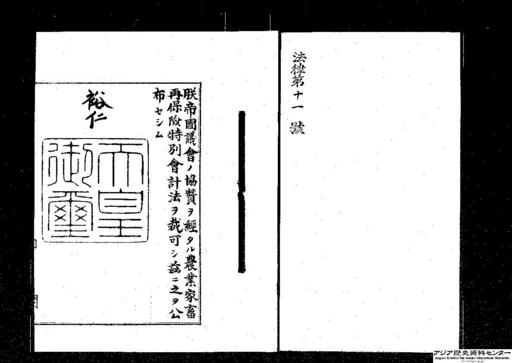 法律第十一號
朕帝國議會ノ協贊ヲ經タル農業家畜
再保險特別會計法ヲ裁可シ茲ニ之ヲ公
布セシム
裕仁
天皇
御璽
アジア歴史資料センター
Japan Center for Asian Historical Records